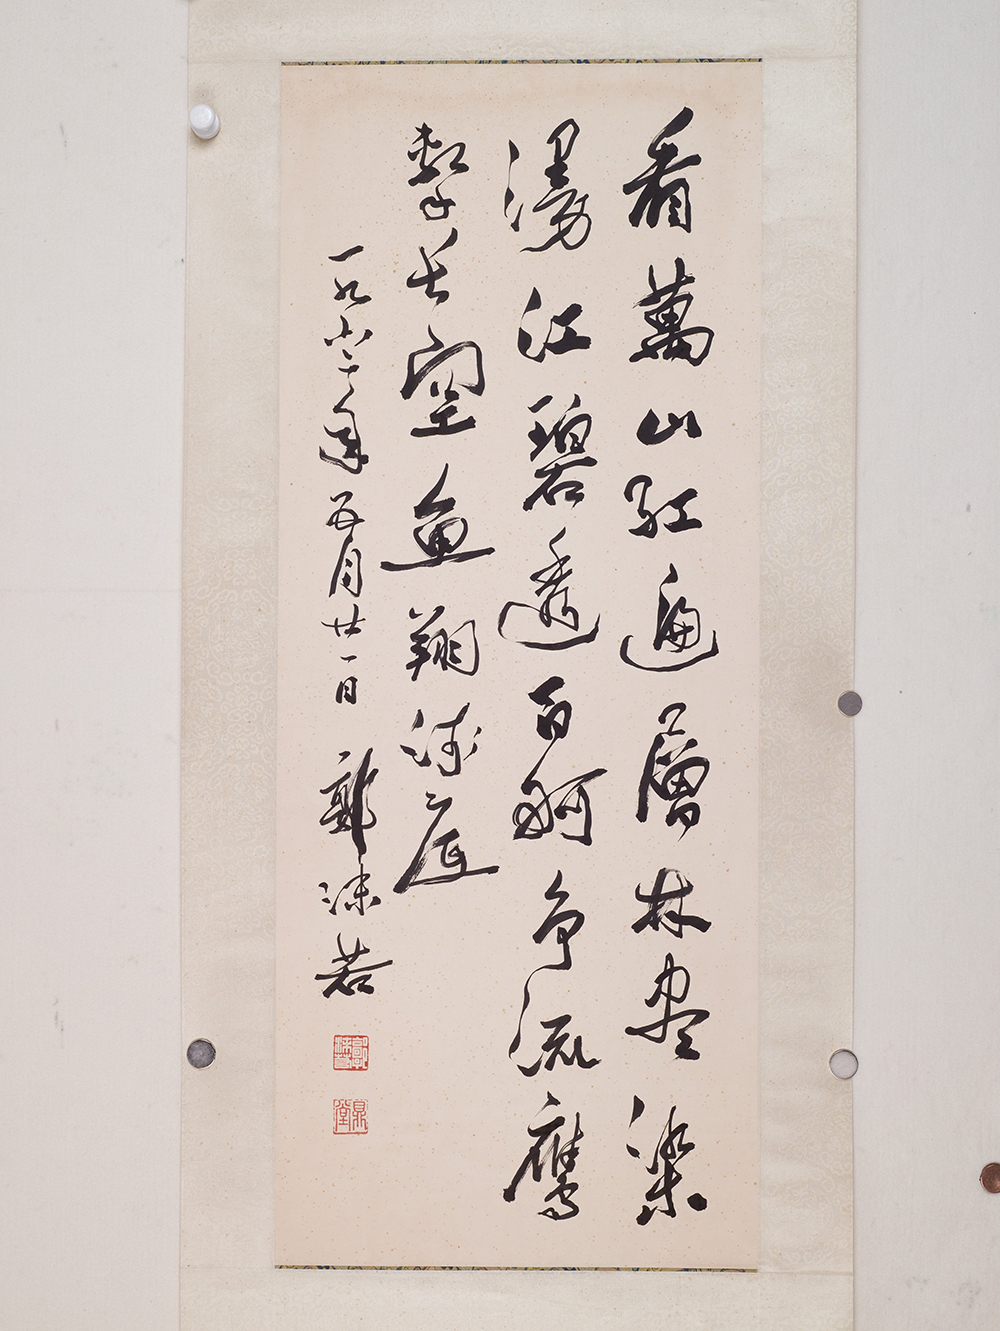 看萬山紅遍層林盡染
漫江碧透百舸争流鷹
擊長空魚翔淺底
一九六二年五月廿一日 郭沫若
郭沫若
鼎堂